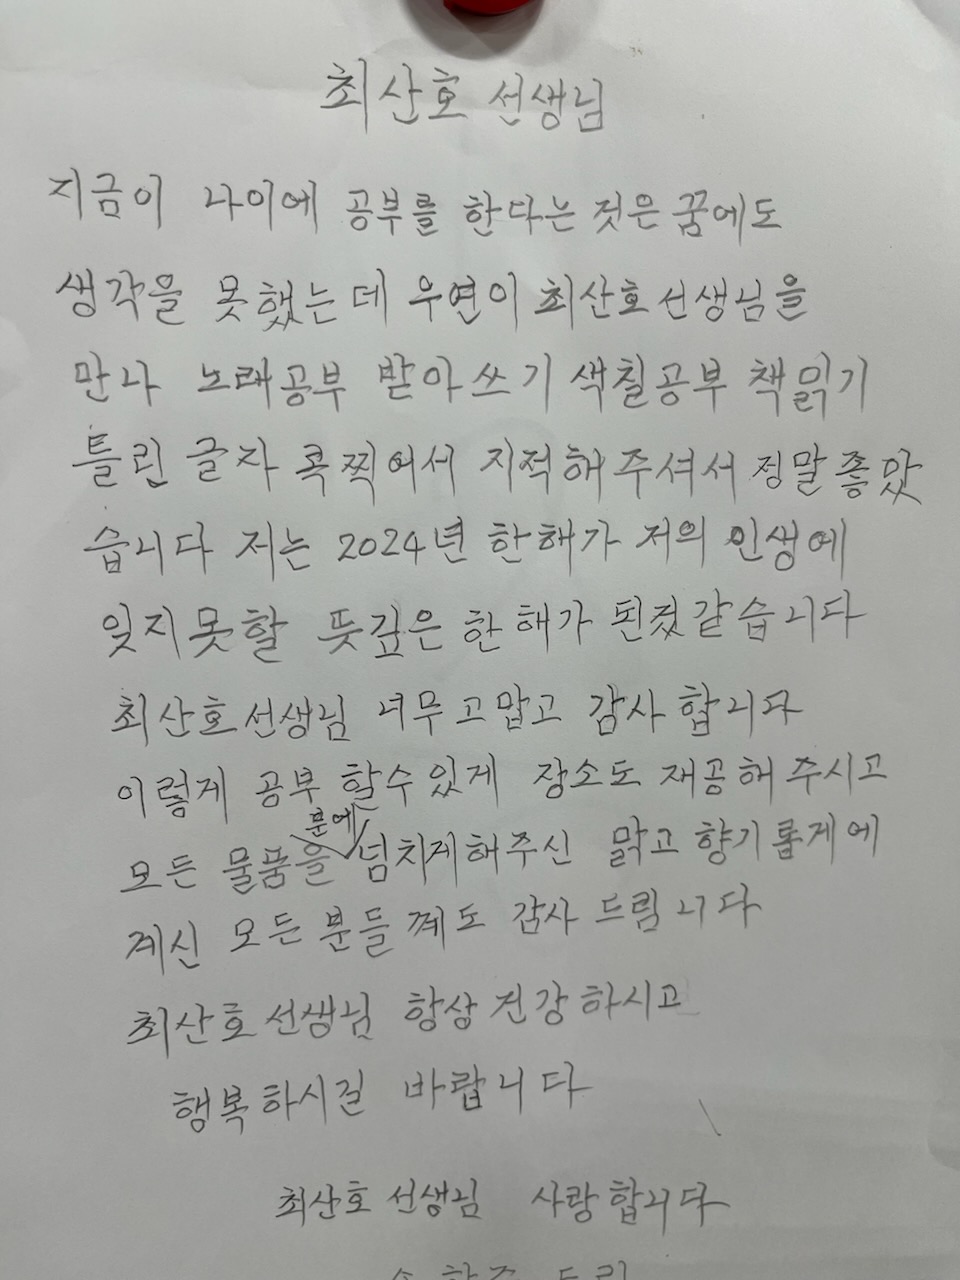 최산호 선생님
지금이 나이에 공부를 한다는 것은 꿈에도
생각을 못했는데 우연이 최산호선생님을
만나 노래공부 받아쓰기 색칠공부 책읽기
틀린 글자 콕찍어서 지적해주셔서 정말좋았
습니다 저는 2024년 한해가 저의 인생에
잊지못할 뜻깊은 한해가 된겄같습니다
최산호선생님 너무고맙고 감사합니다
이렇게 공부 할수있게 장소도 재공해주시고
분에
모든 물품을 넘치게해주신 맑고향기롭게에
계신 모든분들께도 감사드림니다
최산호선생님 항상건강하시고
행복하시길 바랍니다
최산호선생님 사랑합니다
드림